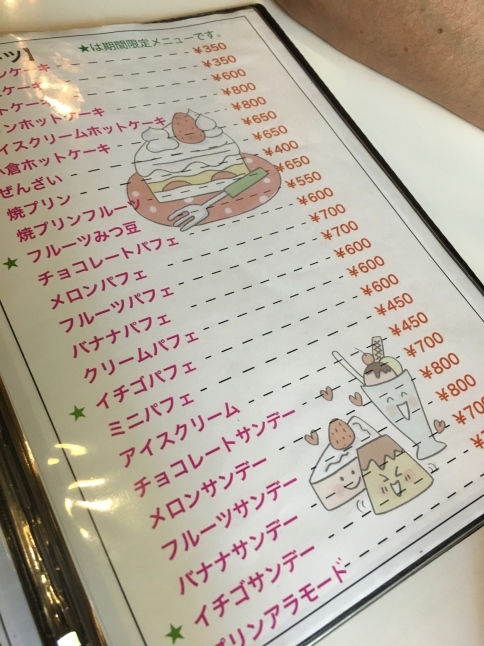 ーツ】 ★は期間限定メニューです。
ケーキ ¥350
ケーキ ¥350
トケーキ ¥600
ンホットケーキ ¥800
イスクリームホットケーキ ¥800
小倉ホットケーキ ¥650
ぜんざい ¥650
焼プリン ¥400
焼プリンフルーツ ¥650
★ フルーツみつ豆 ¥550
チョコレートパフェ ¥600
メロンパフェ ¥700
フルーツパフェ ¥700
バナナパフェ ¥600
クリームパフェ ¥600
★ イチゴパフェ ¥600
ミニパフェ ¥450
アイスクリーム ¥450
チョコレートサンデー ¥700
メロンサンデー ¥800
フルーツサンデー ¥800
バナナサンデー ¥700
★ イチゴサンデー
プリンアラモード